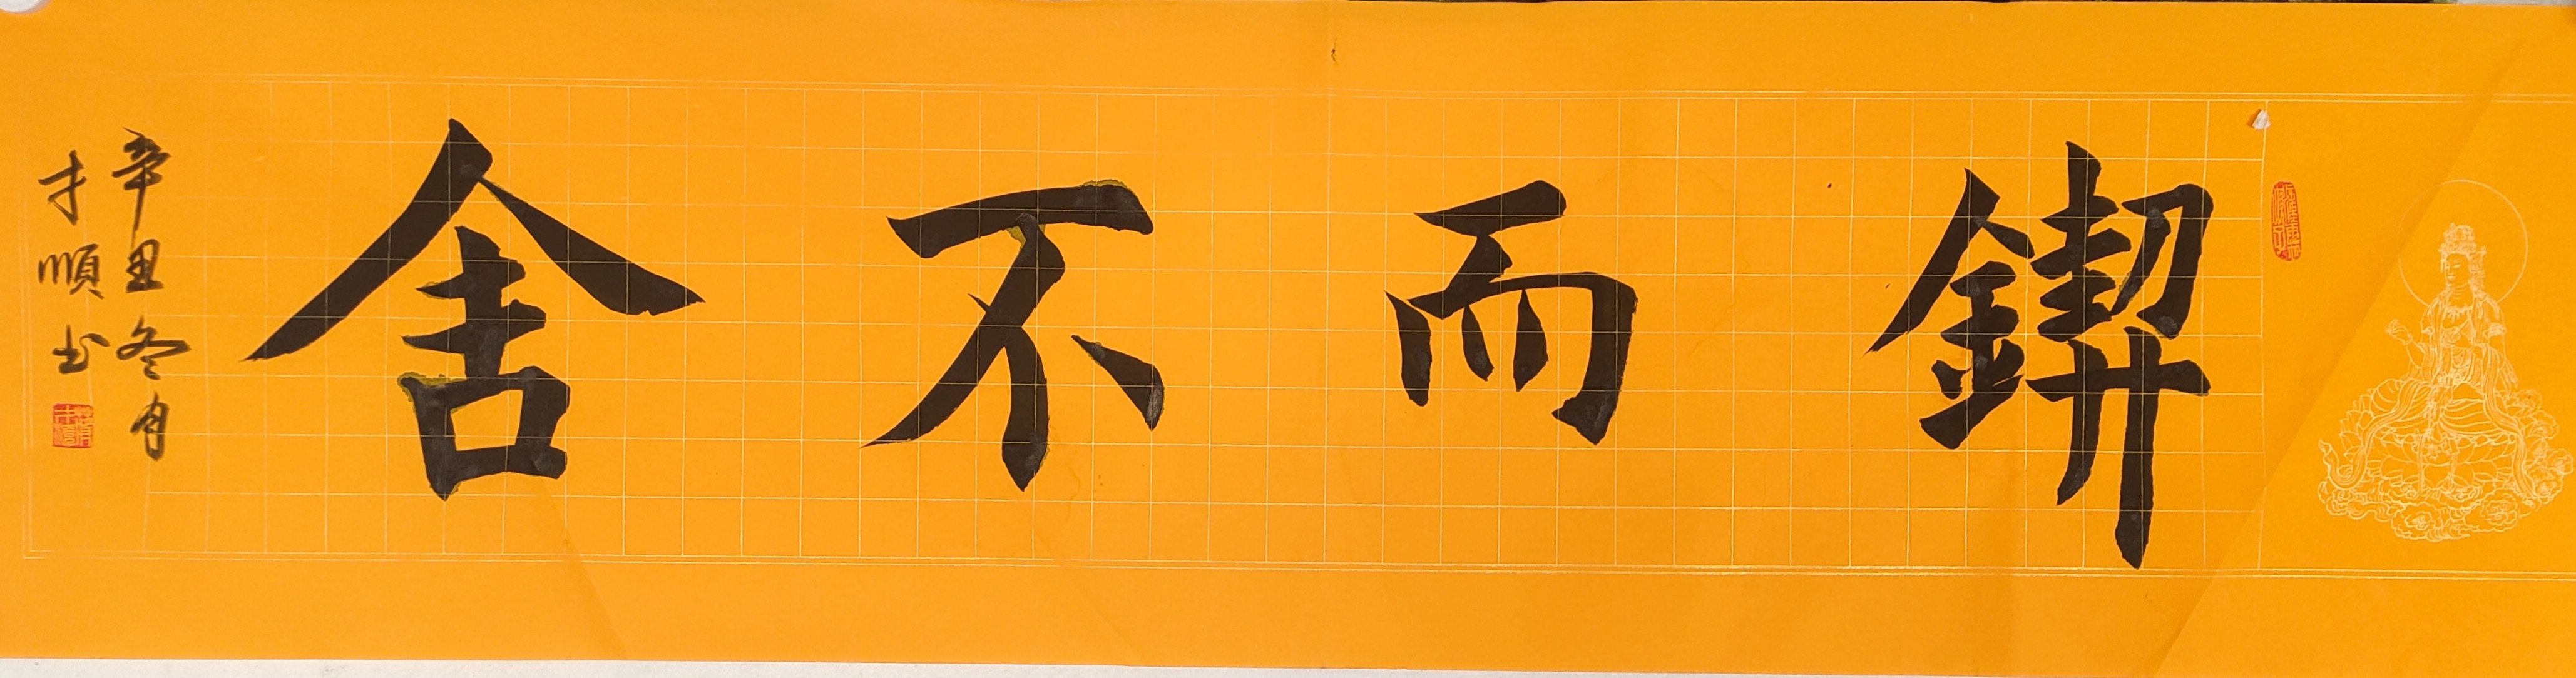 鍥而不舍
辛丑冬月
才順书